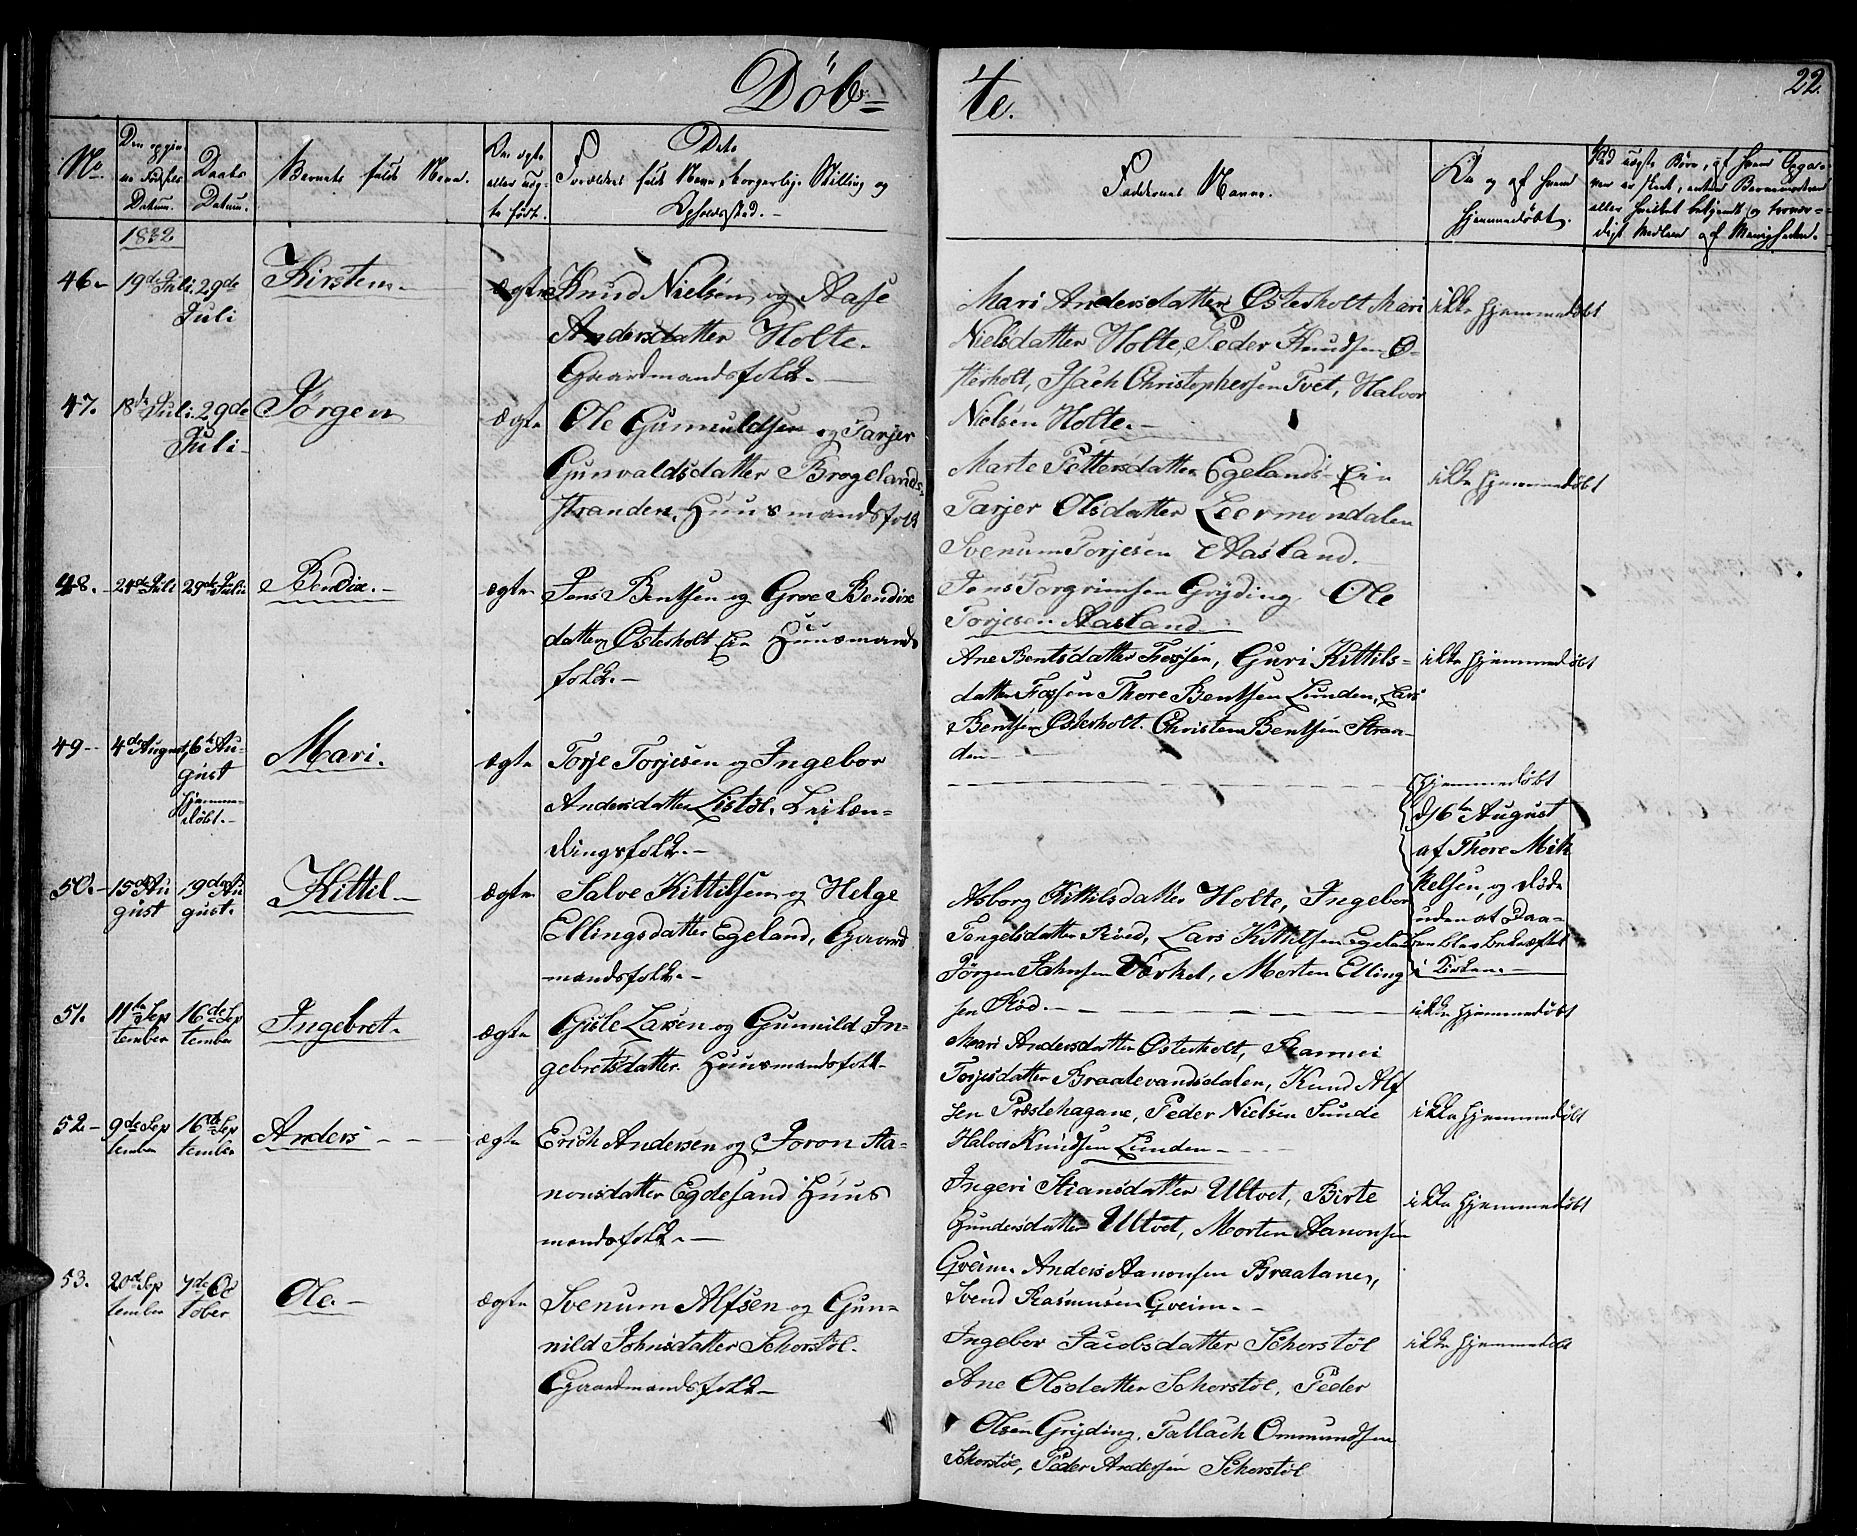 Döb=
te.
22.
No.
Den opgiv-
ne Fødsels
Datum.
Daabs
Datum.
Barnets fulde Navn.
Om ægte
eller uæg-
te født.
Dets
Forældres fulde Navne, borgerlige Stilling og
Opholdssted.
Faddernes Navne.
Om og af hvem
hjemmedøbt.
1832
46- 19de Juli 29de
Juli
Kirsten.
ægte
Knud Nielsen og Aase
Andersdatter Holte.
Gaardmandsfolk.
Mari Andersdatter Østerholt Mari
Nielsdatter Holte, Peder Knudsen Ø-
sterholt, Isach Christophersen Tvet, Halvor
Nielsen Holte.
ikke hjemmedøbt
47. 18de Juli. 29de
Juli
Jörgen
ægte
Ole Gunnuldsen og Tarjer
Gunvaldsdatter Brogelands-
stranden, Huusmandsfolk
Marte Pettersdatter Egelands Eie
Tarjer Olsdatter Leermondalen
Svenum Torjesen Aasland.
Jens Torgrimsen Gryding Ole
Torjesen Aasland
ikke hjemmedøbt
48. 24de Juli 29de Julii
Bendix.
ægte
Jens Bentsen og Groe Bendix
datter Østerholt Eie Huusmands
folk.
Ane Bentsdatter Fossen, Guri Kittils-
datter Fossen Thore Bentsen Lunden, Lars
Bentsen Østerholt. Christen Bentsen Stran-
den
ikke hjemmedøbt
49- 4de August 6te Au-
gust
hjemme-
døbt.
Mari.
ægte
Torje Torjesen og Ingebor
Andersdatter Listöl, Leilæn-
dingsfolk.
hjemmedøbt
d 6te August
af Thore Mik
kelsen, og døde
uden at Daa-
ben blev bekræftet
i Kirken.
50. 15de Au
gust
19de Au
gust.
Kittil
ægte
Salve Kittilsen og Helge
Ellingsdatter Egeland, Gaard
mandsfolk.
Asborg Kittilsdatter Holte, Ingebor
Tengelsdatter Röed, Lars Kittilsen Egeland
Jörgen Jahnsen Værket, Morten Elling
sen Röd.
ikke hjemmedøbt
51. 11te Sep
tember
16de Sep
tember
Ingebret.
ægte
Gisle Larsen og Gunnild In-
gebretsdatter. Huusmandsfolk.
Mari Andersdatter Østerholt, Rannei
Torjesdatter Braatevandsdalen, Knud Alf
sen Præstehagane, Peder Nielsen Sunde
Halvor Knudsen Lunden
ikke hjemmedøbt
52- 9de Sep
tember
16de Sep
tember
Anders
ægte
Erich Andersen og Joron Aa-
nonsdatter Egdesand Huus
mandsfolk.
Ingeri Stiansdatter Ultvet, Birte
Gundersdatter Ultvet, Morten Aanonsen
Gveim. Anders Aanonsen Braatane,
Svend Rasmusen Gveim.
ikke hjemmedøbt
53. 20de Sep
tember
7de Oc
tober
Ole.
ægte
Svenum Alfsen og Gun-
nild Johnsdatter Schorstöl.
Gaardmandsfolk
Ingebor Jacobsdatter Schorstöl
Ane Olsdatter Schorstöl, Peder
Olsen Gryding, Tallach Ommundsen
Schorstöl, Peder Andersen Schorstöl
ikke hjemmedøbt